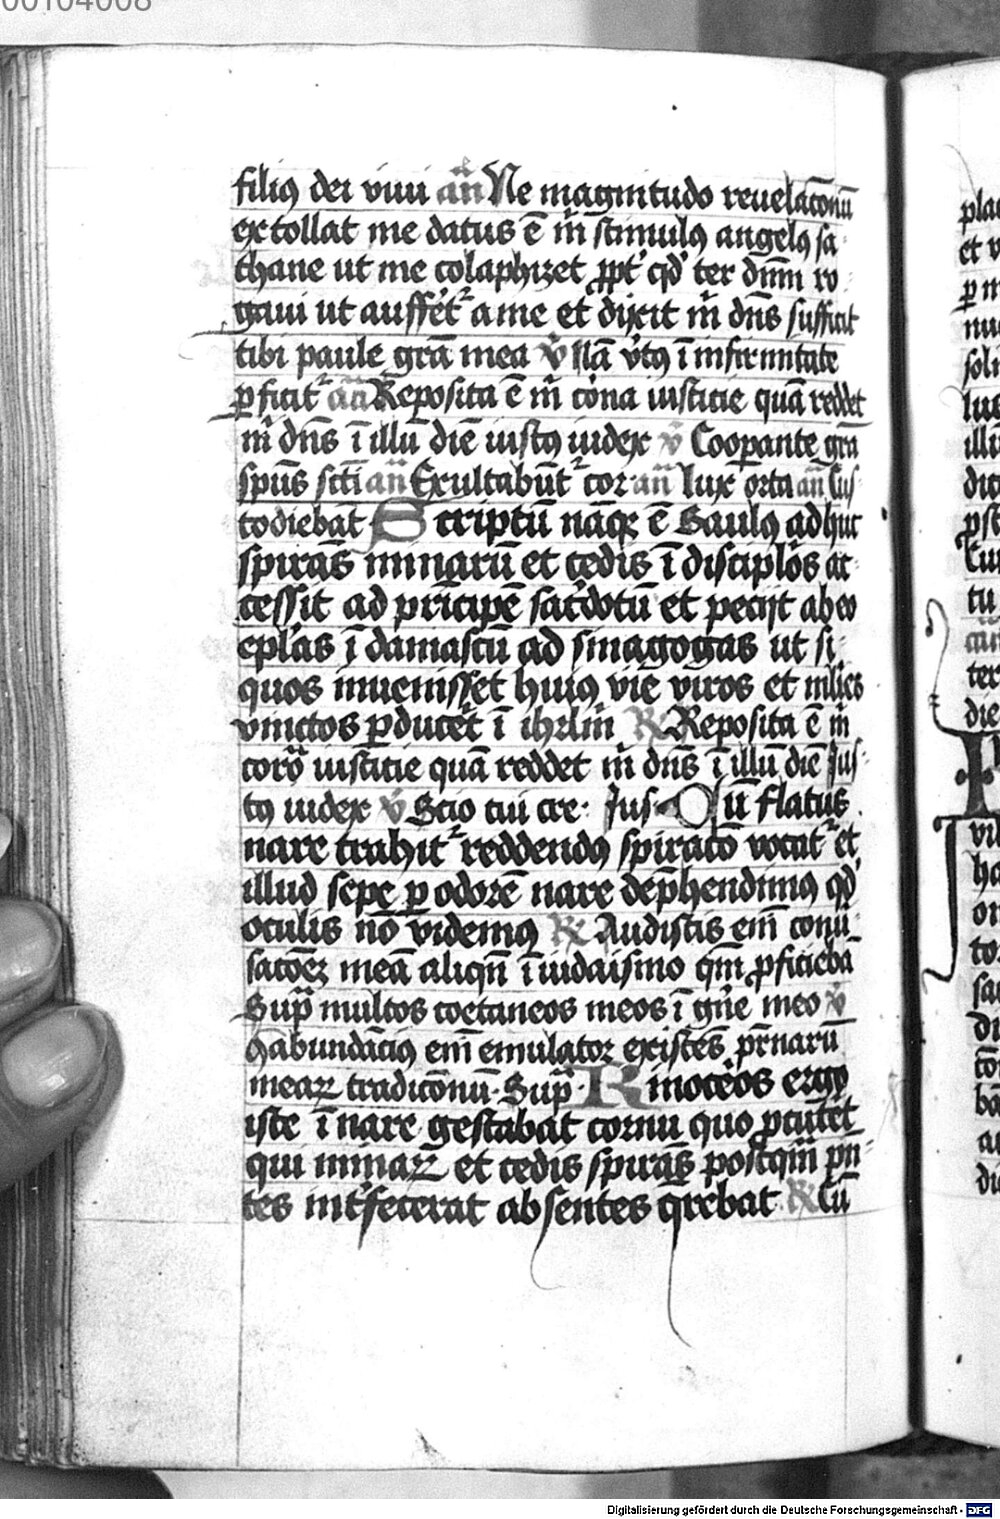 00104008
filiꝯ dei viui an̄ Ne magnitudo reuelac̄onū
extollat me datus ē m̄ stimulꝯ angelꝯ sa
thane ut me colaphizet ꝓpt' qd' ter dn̄m ro
gaui ut auffet' a me et dixit m̄ dn̄s sufficit
tibi paule grā mea v̄ Nā v̓tꝯ ī infirmitate
ꝑficit' an̄ Reposita ē m̄ corōna iusticie quā reddet
m̄ dn̄s ī illū diē iustꝯ iudex v̄ Coopante grā
spūs scti an̄ Exultabūt cor an̄ lux orta an̄ Cus
todiebāt Scriptū nāqꝫ ē Saulꝯ adhuc
spirās minarū et cedis ī disciplōs ac
cessit ad prīncipē sac̓dotū et pecijt ab eo
eplās ī damascū ad sinagogas ut si
quos inuenisset huiꝯ vie viros et mlīes
vinctos ꝑducet̓ ī ihrlm̄ R Reposita ē m̄
corōa iusticie quā reddet m̄ dn̄s ī illū diē Jus
tꝯ iudex v̄ Scio cui cre: Jus Cū flatus
nare trahit' reddendꝯ spirac̄o vocat' et
illud sepe ꝑ odorē nare dep̄hendimꝯ qd'
oculis nō videmꝯ R Audistis em̄ conu̓
sac̄oeꝫ meā aliqn̄ ī iudaismo qm̄ ꝓficiebā
Sup̄ multos coetaneos meos ī gn̄e meo v̄
Habundācius em̄ emulator existēs pr̄narū
meaꝝ tradic̄onū Sup̄ Rinoceōs ergo
iste ī nare gestabat cornu quo ꝑcutet̓
qui minaꝝ et cedis spirās postqm̄ pn̄
tes int̓fecerat absentes q̄rebat R Cū
Digitalisierung gefördert durch die Deutsche Forschungsgemeinschaft - DFG